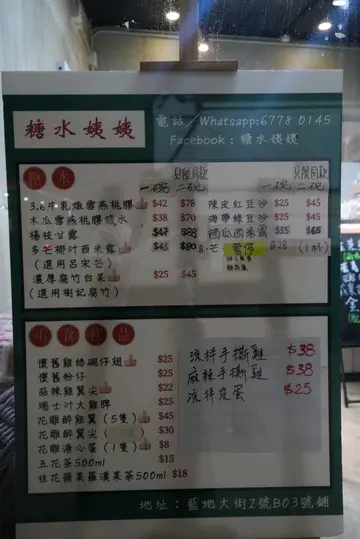 糖水姨姨
電話/Whatsapp:6778 0145
Facebook:糖水姨姨
糖水
一碗 二碗
3.6牛乳燉雪燕桃膠 $42 $78
木瓜雪燕桃膠糖水 $38 $70
楊枝甘露
多芒椰汁西米露
(選用呂宋芒)
濃厚腐竹白果 $25 $45
(選用樹記腐竹)
一碗 二碗
陳皮紅豆沙 $25 $45
海帶綠豆沙 $25 $45
西瓜西米露 $35 $65
$28 (1杯)
小食飲品
懷舊雞絲碗仔翅 $25
懷舊粉仔 $25
麻辣雞翼尖 $22
瑞士汁大雞脾 $25
花雕醉雞翼(5隻) $45
花雕醉雞翼尖 $30
花雕溏心蛋(1隻) $8
五花茶500ml $15
桂花蘋果羅漢果茶500ml $18
涼拌手撕雞 $38
麻辣手撕雞 $38
涼拌皮蛋 $25
地址:藍地大街2號B03號舖